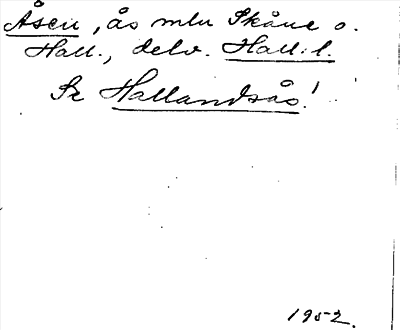 Åsen, ås mln Skåne o.
Hall., delv. Hall:l.
Se Hallandsås!
1952.